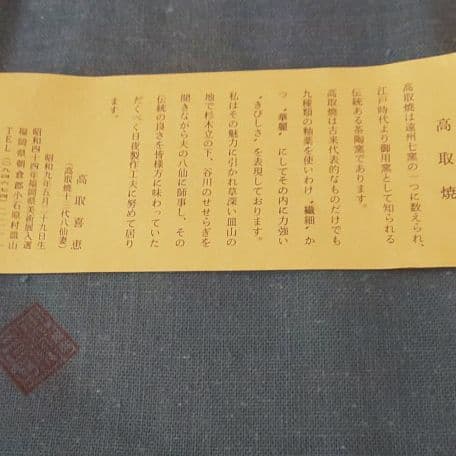 高取焼
高取焼は遠州七窯の一つに数えられ、
江戸時代より御用窯として知られる
伝統ある茶陶窯であります。
高取焼は古来代表的なものだけでも
九種類の釉薬を使いわけ〝繊細〟か
つ〝華麗〟にしてその内に力強い
〝きびしさ〟を表現しております。
私はその魅力に引かれ草深い皿山の
地で杉木立の下、谷川のせせらぎを
聞きながら夫の八仙に師事し、その
伝統の良さを皆様方に味わっていた
だくべく日夜製陶工夫に努めて居り
ます。
高取喜恵
(高取焼十二代八仙妻)
昭和九年五月二十九日生
昭和四十四年福岡県美術展入選
福岡県朝倉郡小石原村皿山
TEL